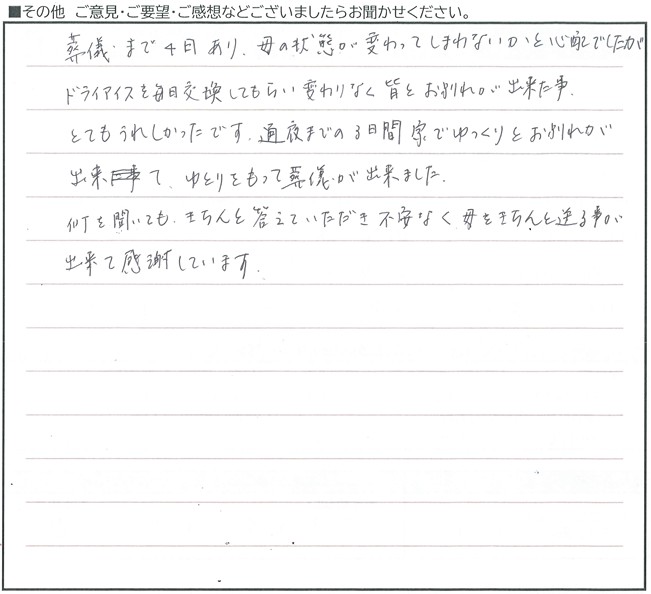 ■その他 ご意見・ご要望・ご感想などございましたらお聞かせください。
葬儀まで4日あり、母の状態が変わってしまわないかと心配でしたが
ドライアイスを毎日交換してもらい変わりなく皆とお別れが出来た事、
とてもうれしかったです。通夜までの3日間家でゆっくりとお別れが
出来て、ゆとりをもって葬儀が出来ました。
何を聞いても、きちんと答えていただき不安なく母をきちんと送る事が
出来て感謝しています。